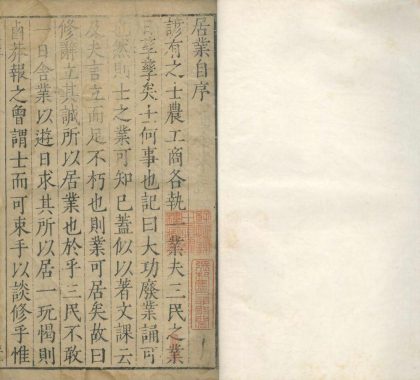 居業自序
諺有之士農工商各執一業夫三民之業
孳孳矣士何事也記曰大功廢業誦可
然則士之業可知已蓋似以著文課云
夫言立而足不朽也則業可居矣故曰
修辭立其誠所以居業也於乎三民不敢
一日舍業以遊日求其所以居一玩愒則
鹵莽報之曾謂士而可束手以談修乎惟